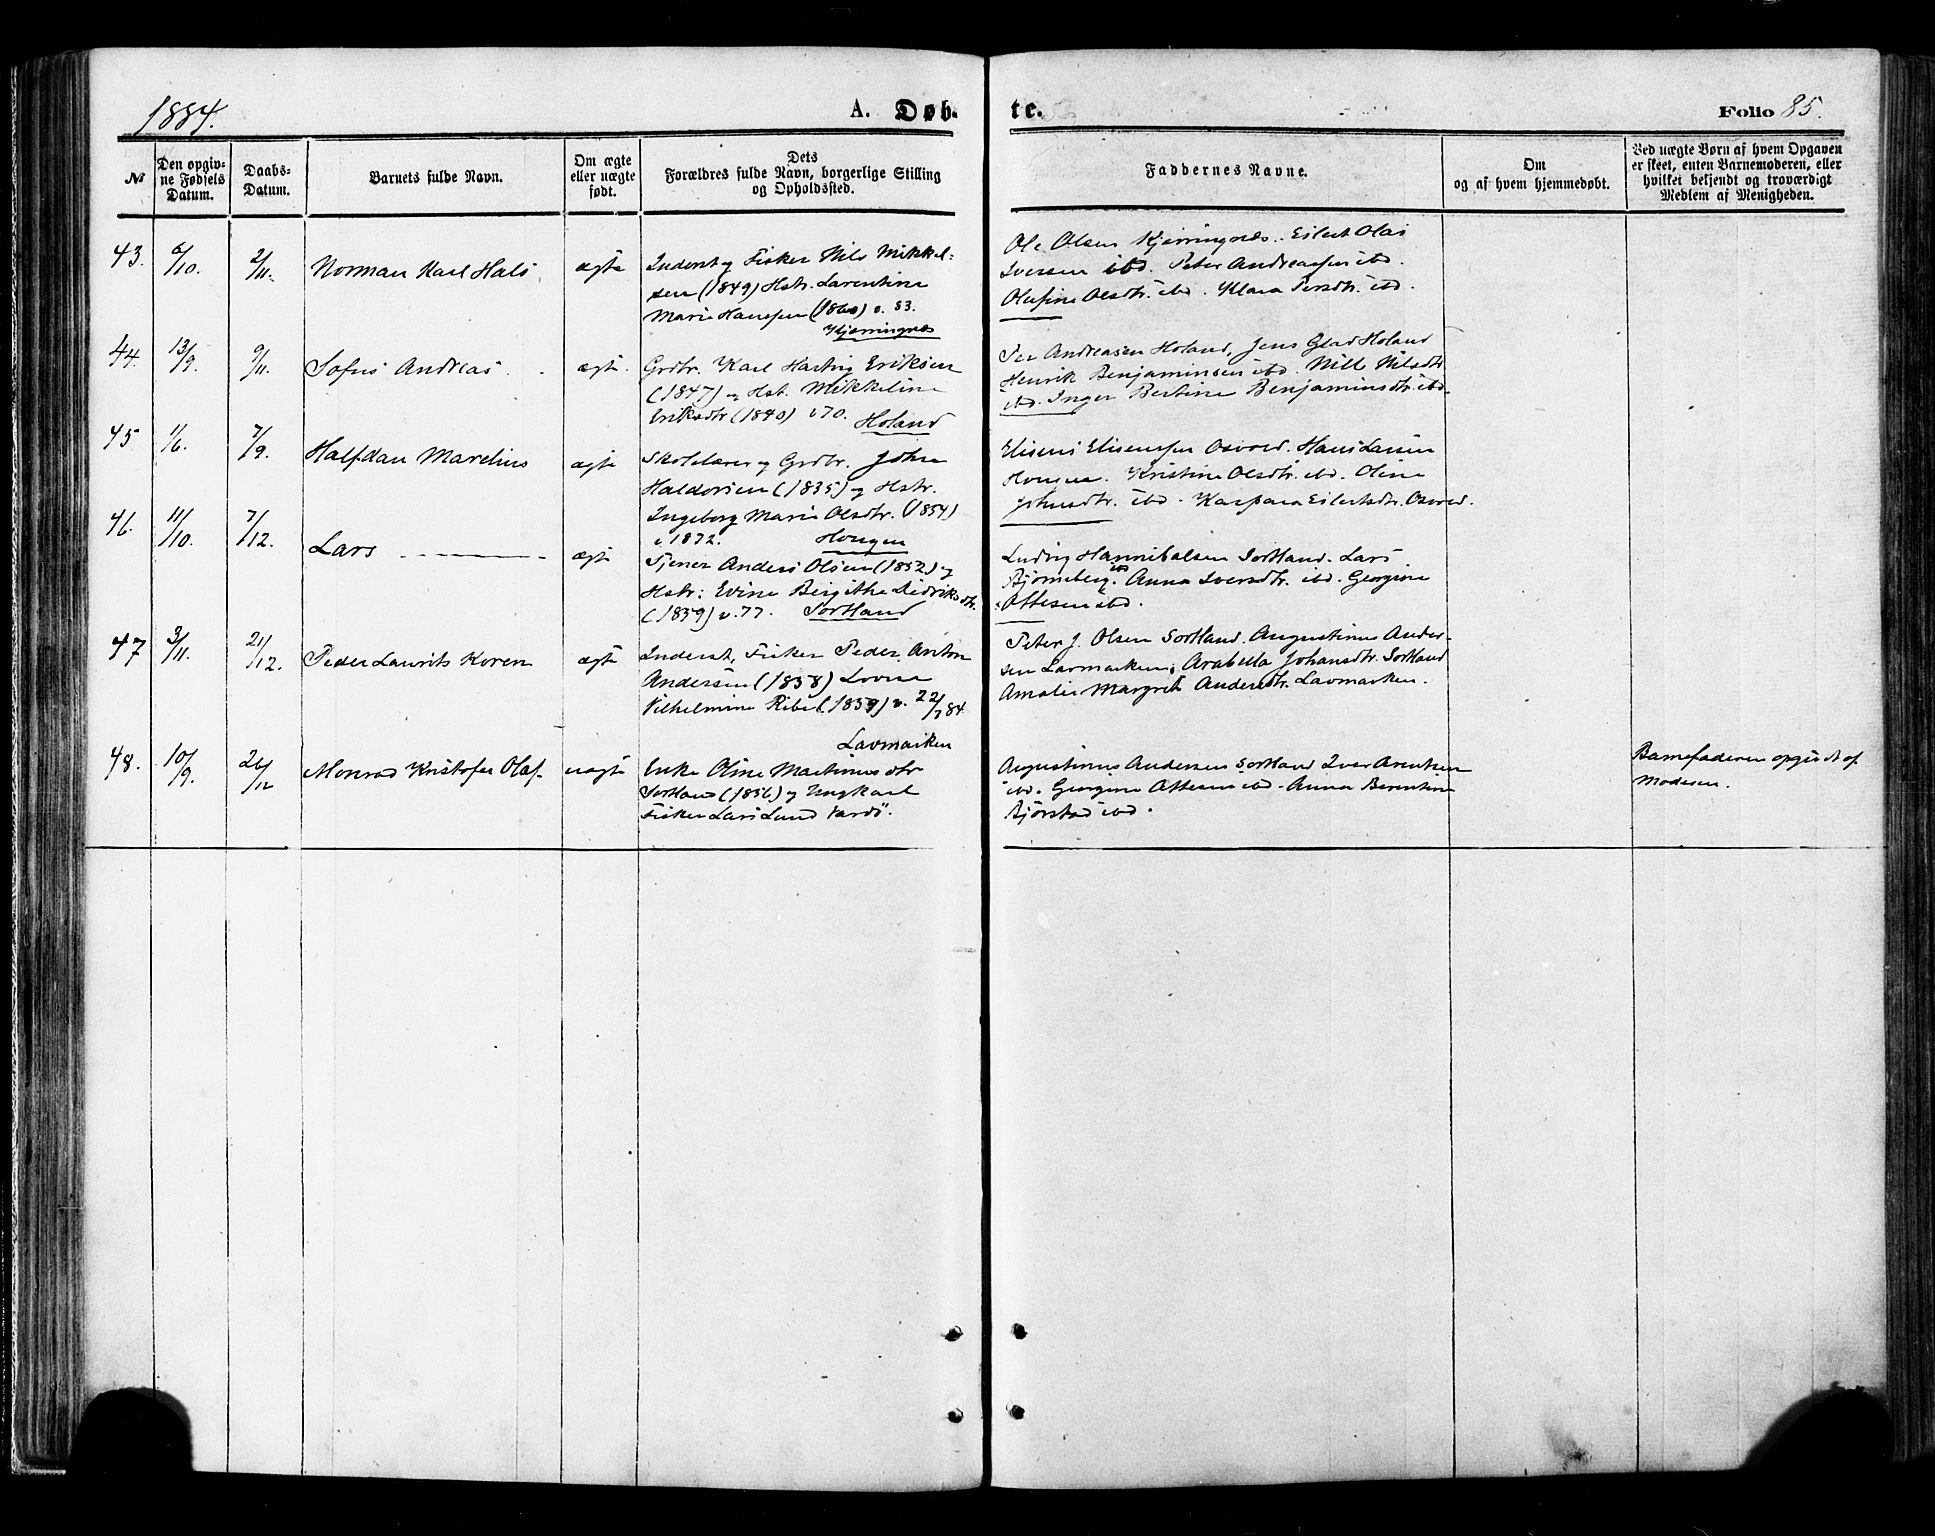 1884.
A. Døb-
te.
Folio 85.
№
Den opgiv-
ne Fødsels
Datum.
Daabs-
Datum.
Barnets fulde Navn.
Om ægte
eller uægte
født.
Dets
Forældres fulde Navn, borgerlige Stilling
og Opholdssted.
Faddernes Navne.
Om
og af hvem hjemmedøbt.
Ved uægte Børn af hvem Opgaven
er skeet, enten Barnemoderen, eller
hvilket bekjendt og troværdigt
Medlem af Menigheden.
43. 6/10. 2/11. Norman Karl Hals ægte
Inderst og Fisker Nils Mikkel-
sen (1849) Hstr. Larentine
Marie Hanssen (1860) v. 83.
Kjerringnes
Ole Olsen Kjerringnes. Eilert Olai
Iversen ibd. Peter Andreassen ibd.
Olufine Olsdtr. ibd. Klara Persdtr. ibd.
44. 13/9. 9/11. Sofus Andreas ægte.
Grdbr. Karl Hartvig Eriksen
(1847) og Hst. Mikkeline
Eriksdtr (1840) v 70. Holand
Per Andreasen Holand, Jens Glad Holand
Henrik Benjaminsen ibd. Nill Nilsdtr
ibd. Inger Bertine Benjaminsdtr. ibd.
45 1/6. 7/9. Halfdan Marelius ægte
Skolelærer og Grdbr. John
Haldorsen (1835) og Hstr.
Ingeborg Marie Olsdtr. (1854)
v 1872. Hongen
Eliseus Eliseussen Osvold. Hans Larsen
Hongen. Kristine Olsdtr. ibd. Oline
Johnsdtr. ibd. Kaspara Eilertsdtr. Osvold.
46. 11/10. 7/12. Lars ægte
Tjener Anders Olsen (1852) og
Hstr: Evine Birgithe Didriksdtr.
(1859) v. 77. Sortland
Ludvig Hannibalsen Sortland. Lars
Bjørneberg ibd. Anna Iversdtr. ibd. Georgine
Ottesen ibd.
47 3/11. 21/12. Peder Laurits Koren ægte
Inderst, Fisker Peder Anton
Andersen (1858) Lovise
Vilhelmine Ribe (1859) v. 22/7 84
Lavmarken
Peter J. Olsen Sortland. Augustinus Ander-
sen Lavmarken, Arabella Johansdtr. Sortland
Amalie Margret Andersdtr. Lavmarken.
48. 10/9. 26/12 Monrad Kristofer Olaf. uægte
Enke Oline Martinusdtr
Sortland (1856) og Ungkarl
Fisker Lars Lund Vardö.
Augustinus Andersen Sortland Iver Arentsen
ibd. Georgine Ottesen ibd. Anna Berentine
Bjørstad ibd.
Barnefaderen opgivet af
Moderen.